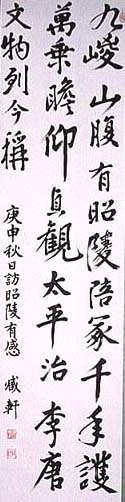 九嵕山腹有昭陵陪冢千年護
萬乘瞻仰貞觀太平治李唐
文物列今稱
庚申秋日訪昭陵有感 臧軒